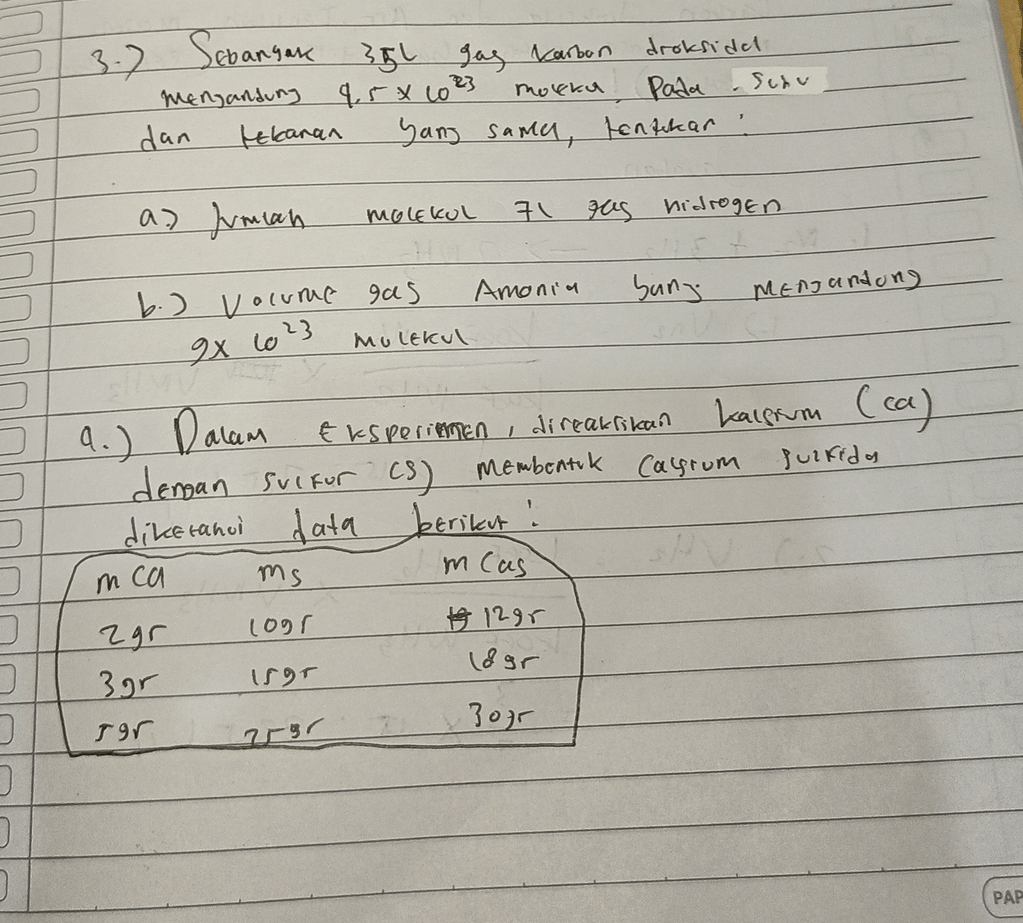 3.) Sebanyak 35L gas karbon dioksida
mengandung 4,5 x 10²³ molekul. Pada suhu
dan tekanan yang sama, tentukan :
a) Jumlah molekul 7L gas hidrogen
b.) Volume gas Amonia yang mengandung
9x 10²³ molekul
4.) Dalam Eksperimen, direaksikan kalsium (ca)
dengan sulfur (S) membentuk Calsium sulfida
diketahui data berikut :
m Ca ms m Cas
2gr 10gr 12gr
3gr 15gr 18gr
5gr 25gr 30gr
PAP